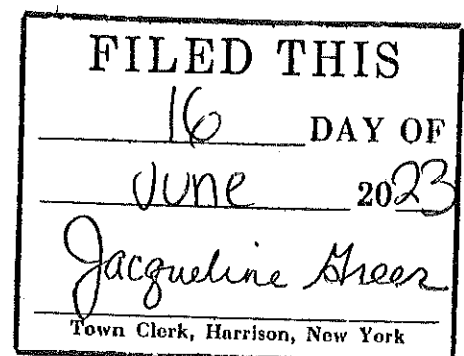 FILED THIS
16 DAY OF
June 2023
Jacqueline Greer
Town Clerk, Harrison, New York